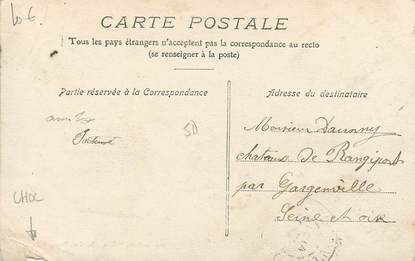 10 €
CARTE POSTALE
Tous les pays étrangers n'acceptent pas la correspondance au recto
(se renseigner à la poste)
Partie réservée à la Correspondance
Adresse du destinataire
Monsieur
chateau de Rangiport
par Gargenville
Seine et oise
CHOC